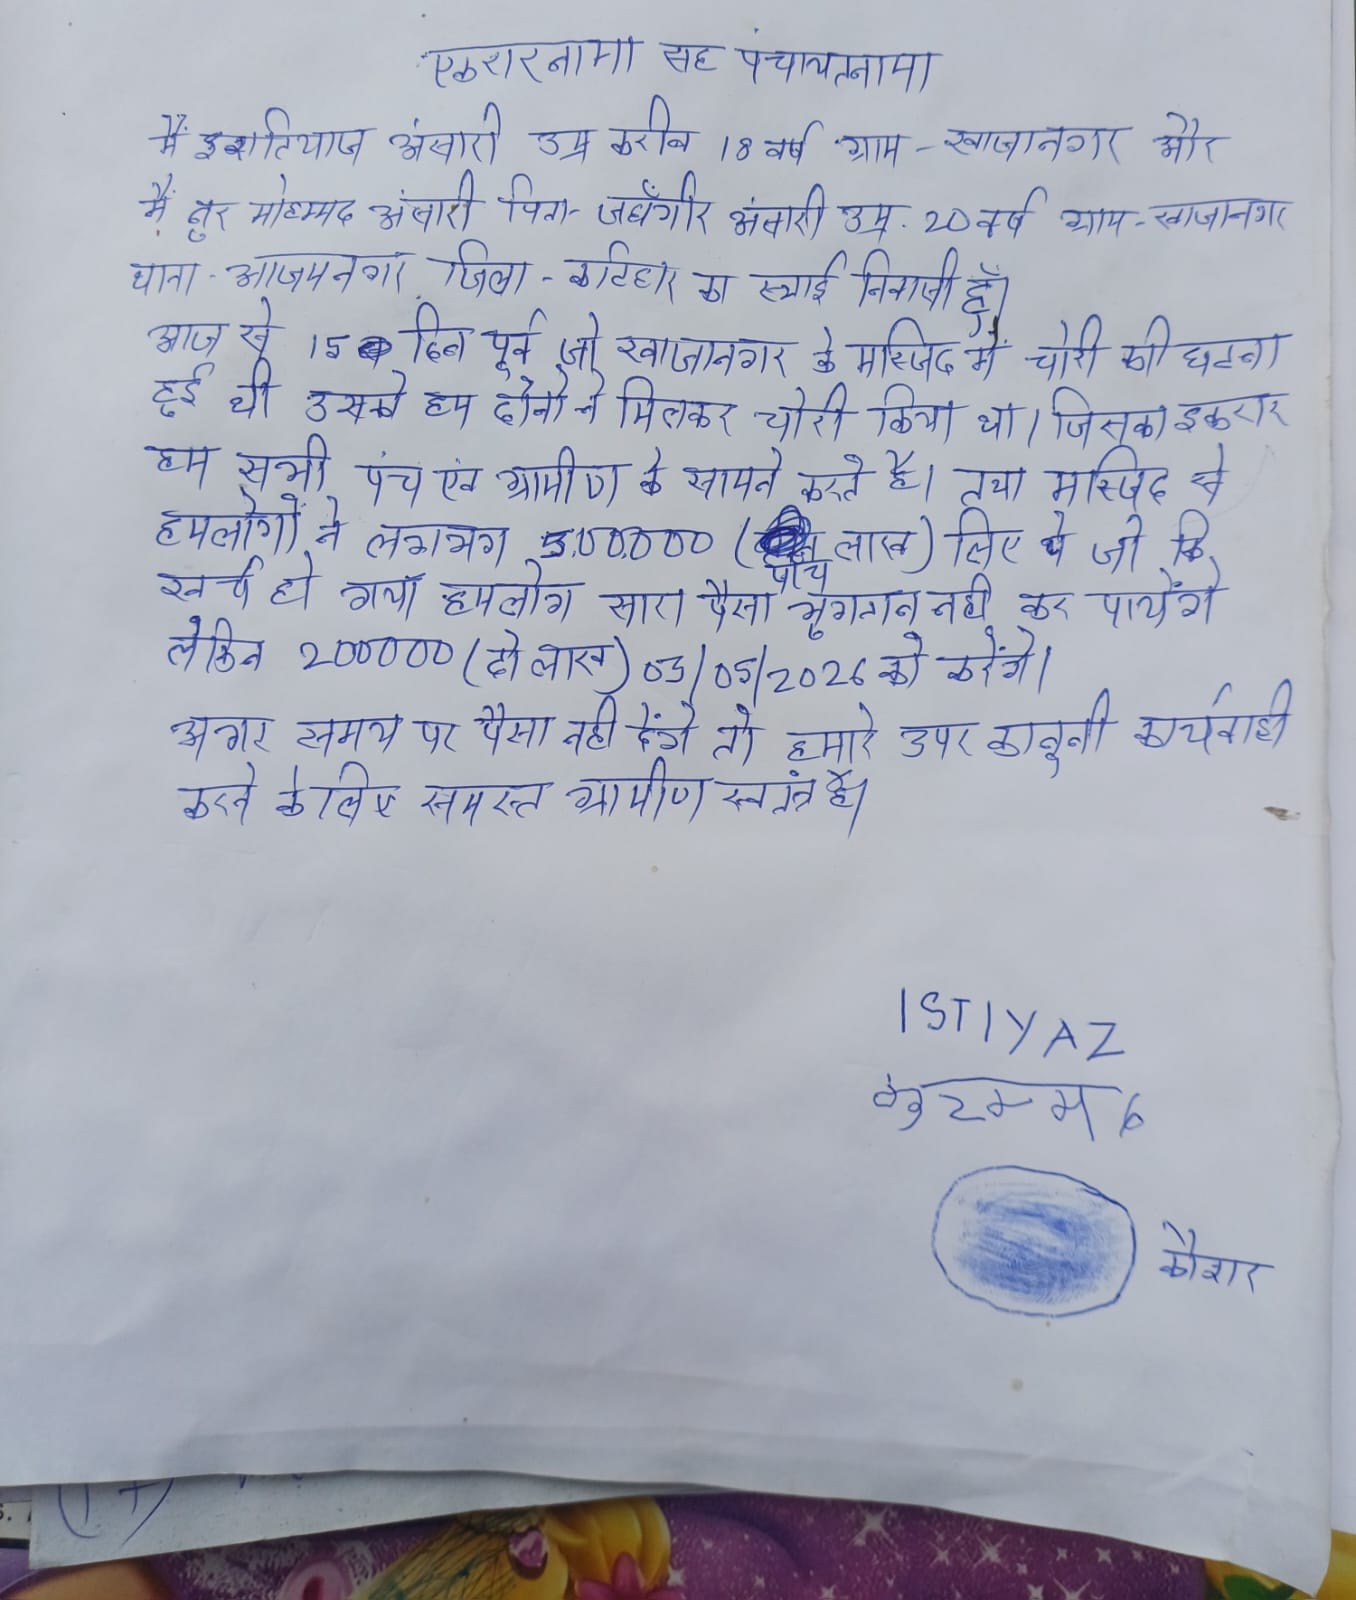 एकरारनामा सह पंचायतनामा
मैं इशतियाज अंसारी उम्र करीब 18 वर्ष ग्राम - खाजानगर और
मैं नुर मोहम्मद अंसारी पिता - जहाँगीर अंसारी उम्र. 20 वर्ष ग्राम - खाजानगर
थाना - आजमनगर जिला - कटिहार का स्थाई निवासी हूँ।
आज से 15 दिन पूर्व जो खाजानगर के मस्जिद में चोरी की घटना
हुई थी उसको हम दोनो ने मिलकर चोरी किया था। जिसका इकरार
हम सभी पंच एंव ग्रामीण के सामने करते है। तथा मस्जिद से
हमलोगों ने लगभग 5,00,000 (पाँच लाख) लिए थे जो कि
खर्च हो गया हमलोग सारा पैसा भुगतान नही कर पायेंगे
लेकिन 200000 (दो लाख) 05/05/2026 को करेंगे।
अगर समय पर पैसा नही देंगे तो हमारे उपर कानूनी कार्यवाही
करने के लिए समस्त ग्रामीण स्वतंत्र है।
ISTIYAZ
कौशर